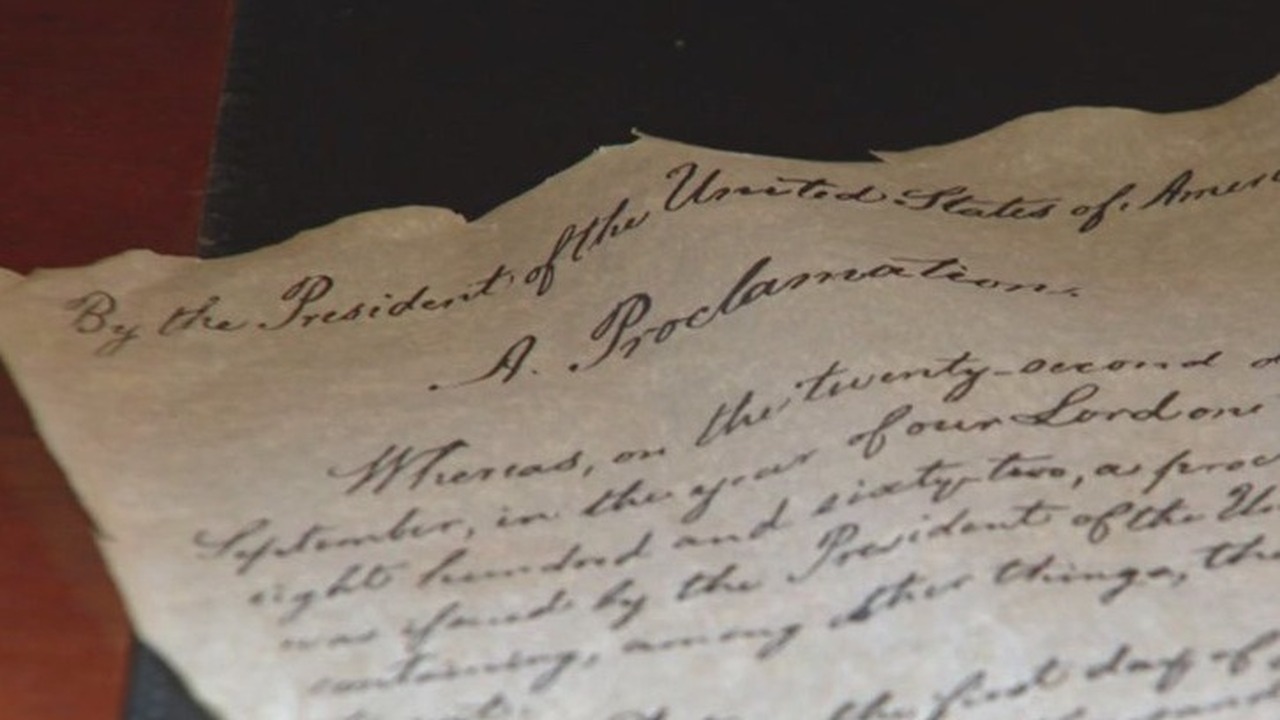 By the President of the United States of Ameri
A. Proclamation.
Whereas, on the twenty-second
September, in the year of our Lord one
eight hundred and sixty-two, a proc
was issued by the President of the Un
containing, among other things, the
the first day of